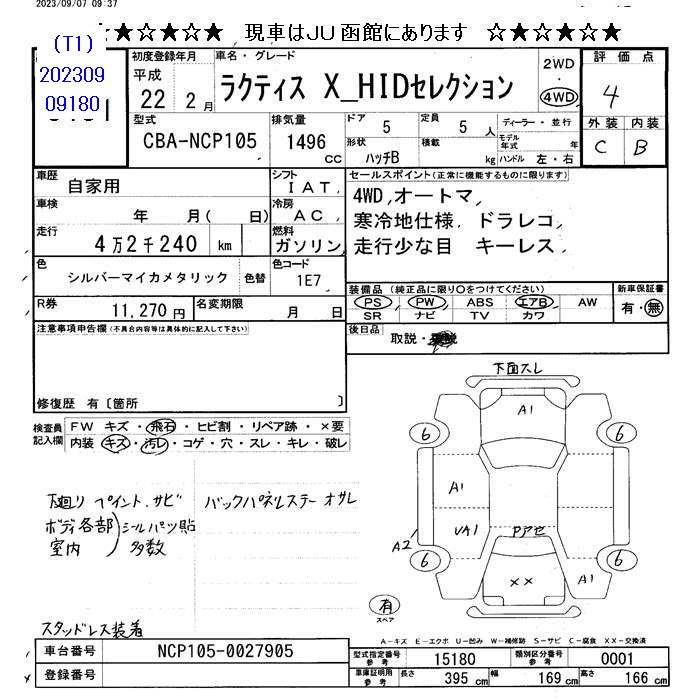 2023/09/07 09:37
★☆★☆★☆ 現車はJU函館にあります ☆★☆★☆★
(T1)
202309
09180
初度登録年月
平成
22年 2月
車名・グレード
ラクティス X_HIDセレクション
2WD
・
4WD
評価点
4
外装 内装
C B
型式
CBA-NCP105
排気量
1496
CC
ドア 5
形状 ハッチB
定員 5 人
積載 kg
ディーラー・並行
モデル年式 年
ハンドル 左・右
車歴 自家用
シフト IAT
車検 年 月( 日)
冷房 AC
走行 4万2千240 km
燃料 ガソリン
色 シルバーマイカメタリック 色替
色コード 1E7
R券 11,270円
名変期限 月 日
セールスポイント(正常に機能するものに限ります)
4WD,オートマ,
寒冷地仕様, ドラレコ,
走行少な目 キーレス,
装備品(純正品に限り○をつけてください)
PS PW ABS エアB AW
SR ナビ TV カワ
新車保証書
有・無
後日品
取説・
注意事項申告欄(不具合内容等は具体的に記入して下さい)
修復歴 有〔箇所 〕
検査員記入欄
FW キズ・飛石・ヒビ割・リペア跡・×要
内装 キズ・汚レ・コゲ・穴・スレ・キレ・破レ
下廻り ペイント.サビ
ボディ各部
室内
シールパーツ貼
多数
バックパネルステー オサレ
スタッドレス装着
下面スレ
A1
6 6
A1
VA1
PPアセ
A2
6 6
××
A1
有
スペア
A−キズ E−エクボ U−凹み W−補修跡 S−サビ C−腐食 XX−交換済
車台番号 NCP105-0027905
登録番号
型式指定番号 参考 15180
類別区分番号 参考 0001
車庫証明用 参考 長さ 395 cm 幅 169 cm 高さ 166 cm